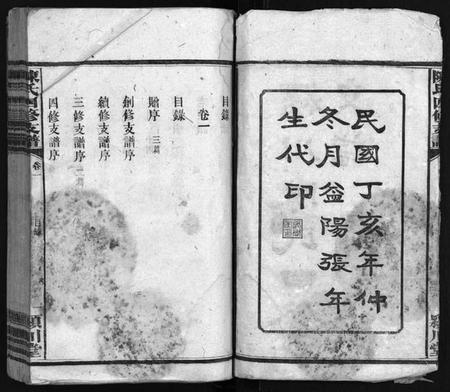 陳氏四修支譜
民國丁亥年仲
冬月益陽張年
生代印
目錄
卷一
目錄
贈序 三篇
創修支譜序
續修支譜序
三修支譜序
四修支譜序
陳氏四修支譜
卷一
目錄
潁川堂